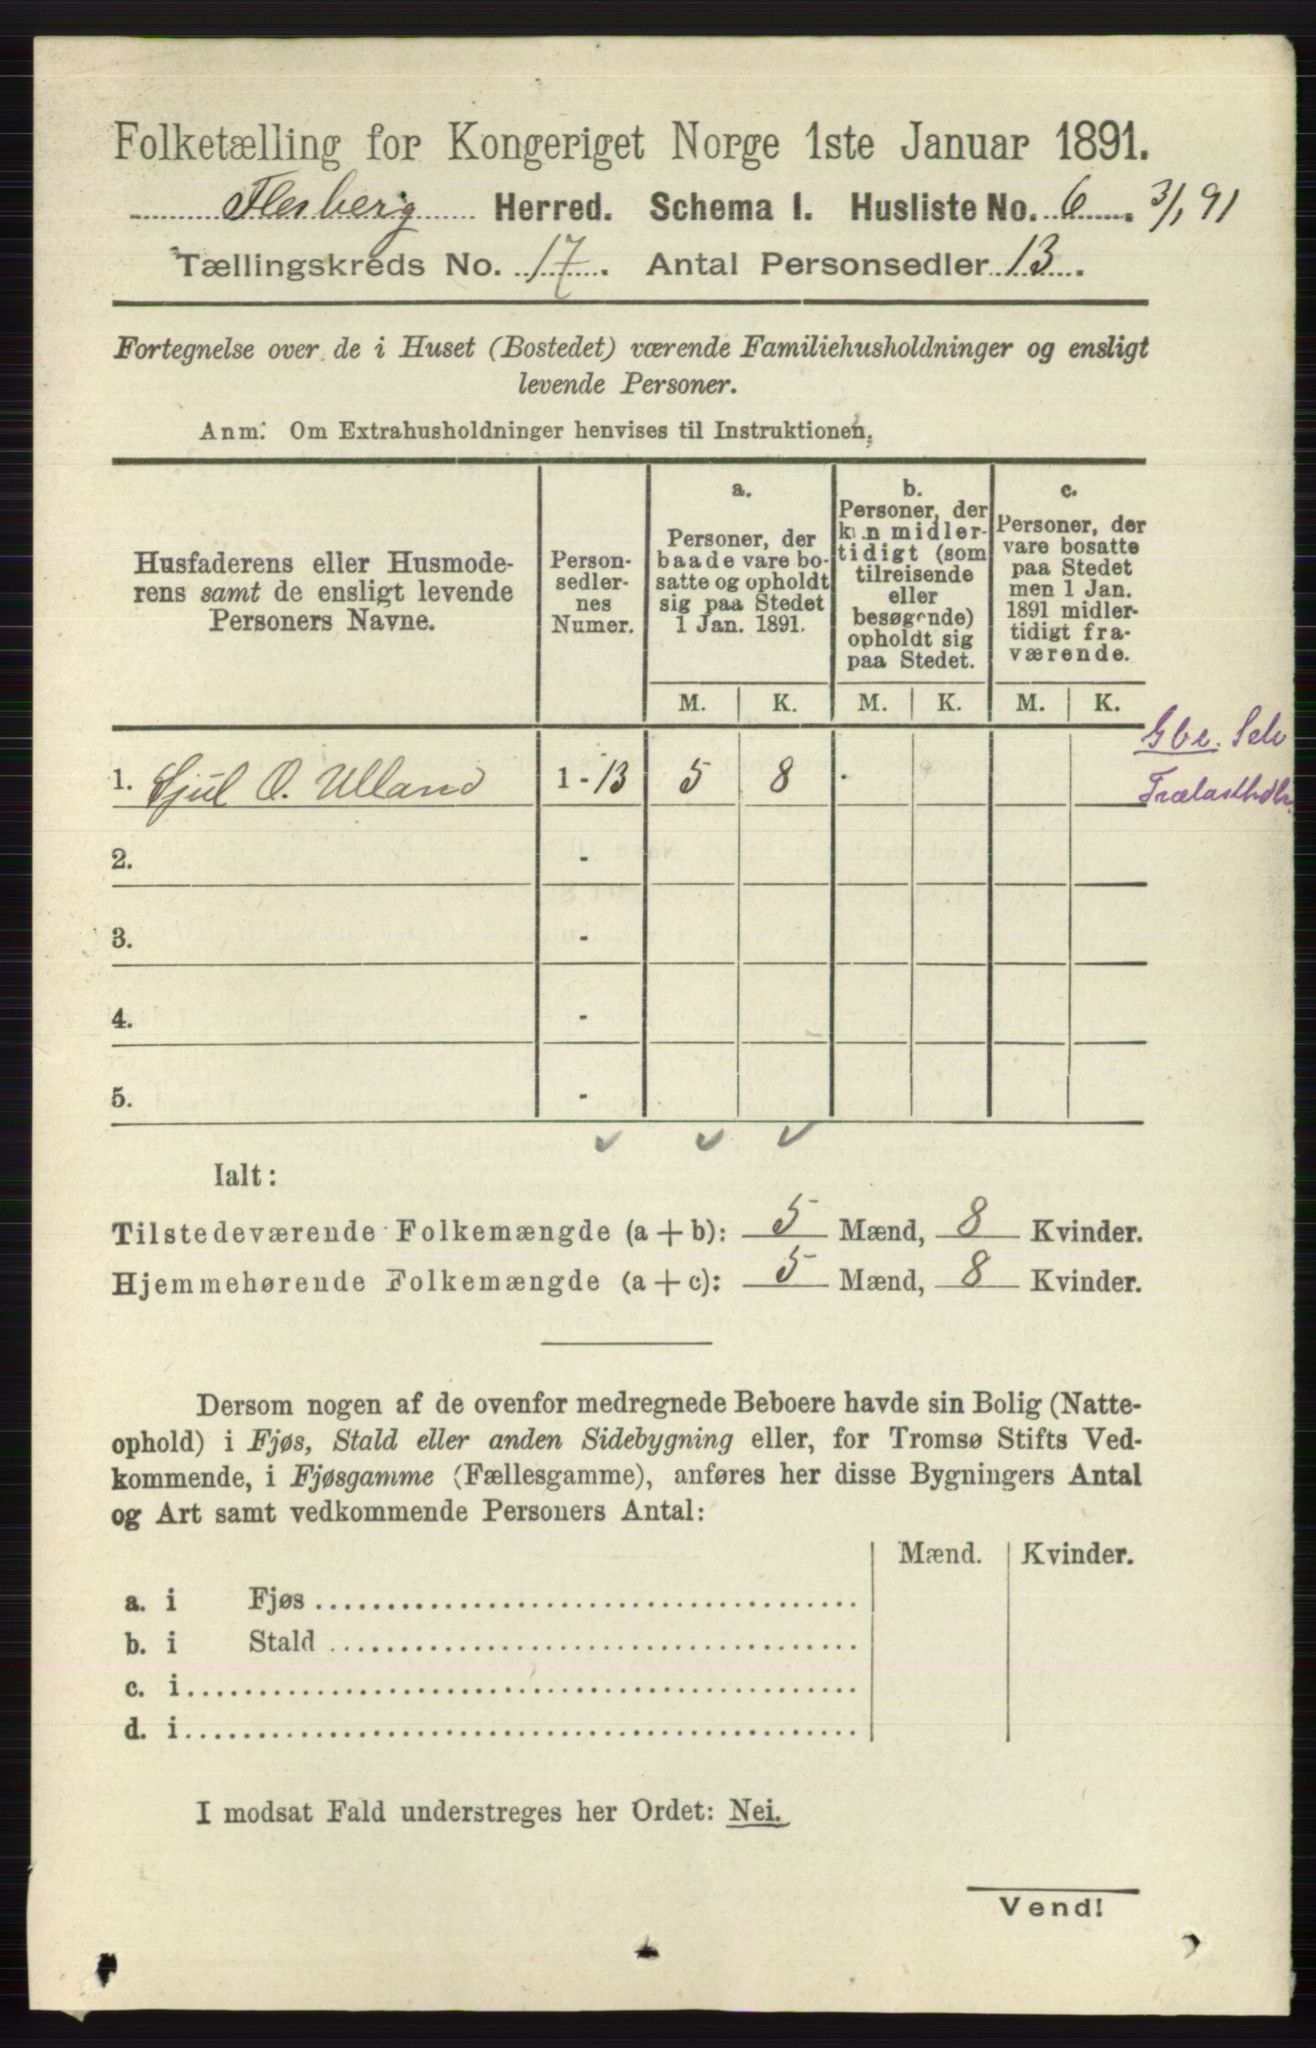 Folketælling for Kongeriget Norge 1ste Januar 1891.
Flesberg Herred. Schema I. Husliste No. 6. 3/1 91
Tællingskreds No. 17. Antal Personsedler 13.
Fortegnelse over de i Huset (Bostedet) værende Familiehusholdninger og ensligt
levende Personer.
Anm. Om Extrahusholdninger henvises til Instruktionen.
Husfaderens eller Husmode-
rens samt de ensligt levende
Personers Navne.
Person-
sedler-
nes
Numer.
a.
Personer, der
baade vare bo-
satte og opholdt
sig paa Stedet
1 Jan. 1891.
b.
Personer, der
kun midler-
tidigt (som
tilreisende
eller
besøgende)
opholdt sig
paa Stedet.
c.
Personer, der
vare bosatte
paa Stedet
men 1 Jan.
1891 midler-
tidigt fra-
værende.
M. K. M. K. M. K.
1. Sjul O. Ulland 1 - 13 5 8 -
Gbr. Selv
Trælasthdlr.
2. -
3. -
4. -
5. -
Ialt:
Tilstedeværende Folkemængde (a + b): 5 Mænd, 8 Kvinder.
Hjemmehørende Folkemængde (a + c): 5 Mænd, 8 Kvinder.
Dersom nogen af de ovenfor medregnede Beboere havde sin Bolig (Natte-
ophold) i Fjøs, Stald eller anden Sidebygning eller, for Tromsø Stifts Ved-
kommende, i Fjøsgamme (Fællesgamme), anføres her disse Bygningers Antal
og Art samt vedkommende Personers Antal:
Mænd. Kvinder.
a. i Fjøs
b. i Stald
c. i
d. i
I modsat Fald understreges her Ordet: Nei.
Vend!